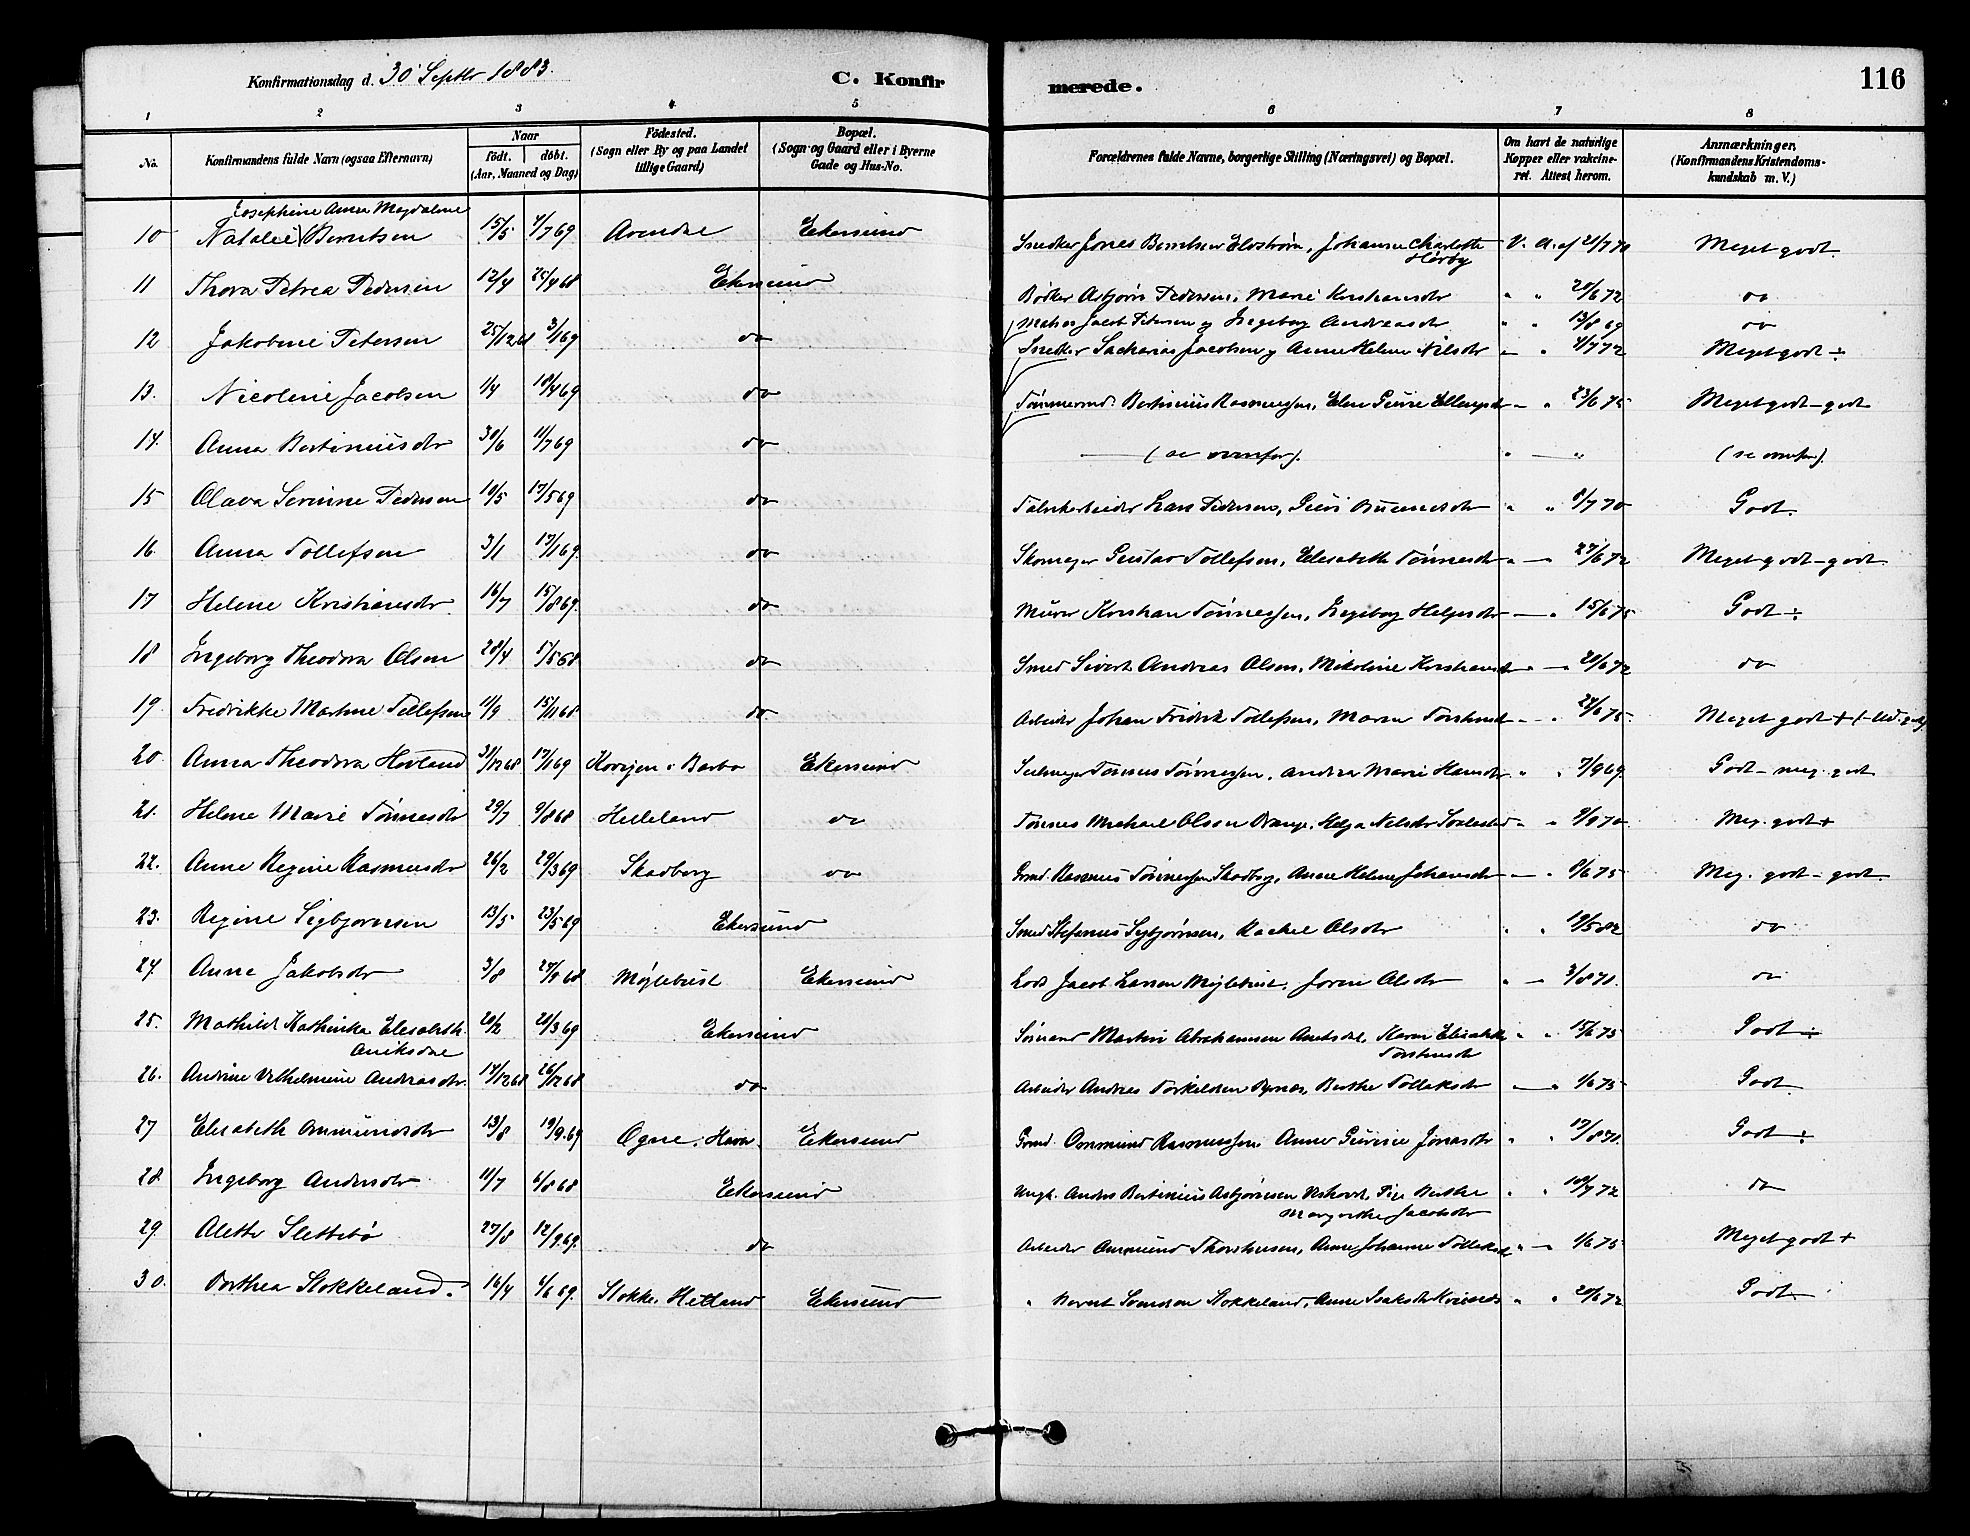 Konfirmationsdag d. 30 Septbr 1883.
C. Konfirmerede.
116
1 2 3 4 5 6 7 8
No. Konfirmandens fulde Navn (ogsaa Efternavn) Naar født. døbt. (Aar, Maaned og Dag) Födested. (Sogn eller By og paa Landet tillige Gaard) Bopæl. (Sogn og Gaard eller i Byerne Gade og Hus-No. Forældrenes fulde Navne, borgerlige Stilling (Næringsvei) og Bopæl. Om havt de naturlige Kopper eller vakcineret. Attest herom. Anmærkninger, (Konfirmandens Kristendomskundskab m. V.)
Josephine Anna Magdalene
10 Natalie Berntsen 15/5 4/7 69 Arendal Ekersund Snedker Jones Berntsen Elvström, Johanne Charlotte Hørby V. A. af 21/7 70 Meget godt.
11 Thora Petrea Pedersen 12/4 26/4 68 Ekersund Bødker Asbjørn Pedersen, Marie Kristiansdr " " 20/6 72 do
12 Jakobine Petersen 25/12 68 3/1 69 do Matros Jacob Petersen og Ingeborg Andreasdr " " 13/8 69 do
13. Nicoline Jacobsen 1/4 18/4 69 do Snedker Sacharias Jacobsen og Anne Helene Nilsdr " 4/7 72 Meget godt ÷
14. Anna Bertiniusdr 30/6 11/7 69 do Tømmermd. Bertinius Rasmussen, Elen Gurine Ellingsdr " 23/6 75 Meget godt - godt
— (se ovenfor). " — " (se ovenfor).
15 Olava Serine Pedersen 10/5 17/5 69 do Fabrikarbeider Lars Pedersen, Guri " " 8/7 70 Godt.
16. Anna Tollefsen 3/1 17/1 69. do Skomager Gustav Tollefsen, Elisabeth Tønnesdr " — " 27/6 72 Meget godt - godt
17 Helene Kristiansdr. 16/7 15/8 69. do Murer Kristian Tønnessen, Ingeborg Helgesdr — " 15/6 75 Godt ÷
18 Ingeborg Theodora Olsen 28/4 5/5 68 do Smed Sivert Andreas Olsen, Nikoline Kristiansdr " — " 20/6 72 do
19. Fredrikke Martine Tollefsen 11/9 15/11 68 do Arbeider Johan Fredrik Tollefsen, Maren Torstensdr — " 24/6 75 Meget godt +
20. Anna Theodora Hovland 31/12 68 17/1 69 i Barbo Ekersund Seilmager Tønnes Tønnessen, Andrea Marie Hansdr " " 7/9 69 Godt - meg. godt
21. Helene Marie Tønnesdr 29/7 9/8 68 Helleland do Tønnes Michael Olsen Helga Nilsdr " " 9/9 70 Meg. godt +
22. Anne Regine Rasmusdr 26/2 29/3 69 Skadberg do Grmd. Rasmus Tønnessen Skadberg, Anne Helene Johansdr — " 9/6 75 Meg. godt - godt.
23. Regine Sigbjørnsen 13/5 23/5 69 Ekersund Smed Stefanus Sigbjørnsen, Rachel Olsdr " " 19/5 82 do
24. Anne Jakobsdr 3/8 27/9 68 Møglebust Ekersund Lods Jacob Larsen Møglebust, Joren Olsdr " — 3/8 70. do
25. Mathilde Kathinka Elisabeth Aniksdal 20/2 28/3 69 Ekersund Sømand Martin Abrahamsen Aniksdal, Karen Elisabeth Torstensdr " " 15/6 75 Godt ÷
26. Andrine Vilhelmine Andreasdr. 17/12 68 26/12 68 do Arbeider Andreas Torkildsen Berthe Tollaksdr — " 1/6 75 Godt
27 Elisabeth Ommundsdr 13/8 19/9. 69 Ogne, Havn Ekersund Grmd. Ommund Rasmussen Anne Gurine Jonasdr " " 17/8 70. Godt ÷
28. Ingeborg Andersdr. 11/7 6/8 68 Ekersund Ungk. Anders Bertinius Asbjørnsen Pige Berthe Margrethe Jacobsdr " " 10/7 72 do
29. Alette Slettebø 27/8 12/9. 69. do Arbeider Ommund Thorstensen, Anne Johanne Tollaksdr " — 1/6 75 Meget godt +
30. Dorthea Stokkeland. 16/4 6/6 69. Stokke, Hetland Ekersund " Bernt Svendsen Stokkeland, Anne Isaksdr " " 20/6 72 Godt.